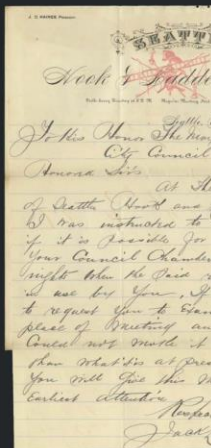 J. C. HAINES, President.
SEATT
Hook & Ladde
Seattle
To His Honor The May
City Council
Honored Sirs
At the
of Seattle Hook and
I was instructed to
if it is possible for
Your Council Chamber
nights when the said
in use by You, If
to request You to Exam
place of Meeting and
Could not make it
than what is at pres
You will Give this M
Earliest attention
Respec
Jack